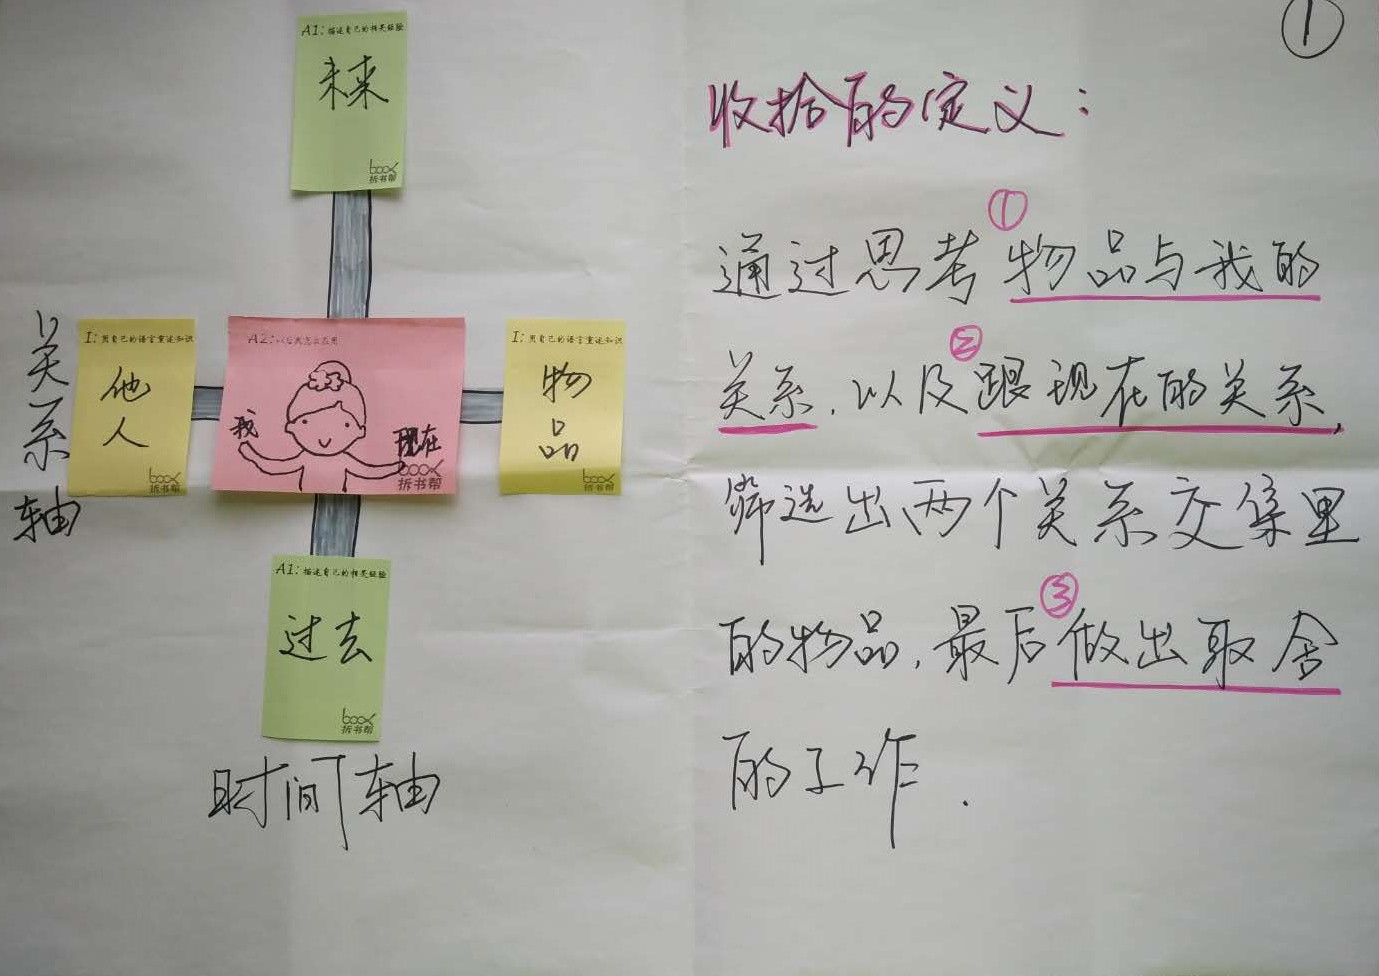 ①
A1: 描述自己的相关经验
未来
book
拆书帮
关系轴
I: 用自己的语言重述知识
他人
book
拆书帮
A2:
我
现在
book
拆书帮
I: 用自己的语言重述知识
物品
book
拆书帮
A1: 描述自己的相关经验
过去
book
拆书帮
时间轴
收拾的定义：
①
通过思考物品与我的
②
关系，以及跟现在的关系，
筛选出两个关系交集里
③
的物品，最后做出取舍
的工作.